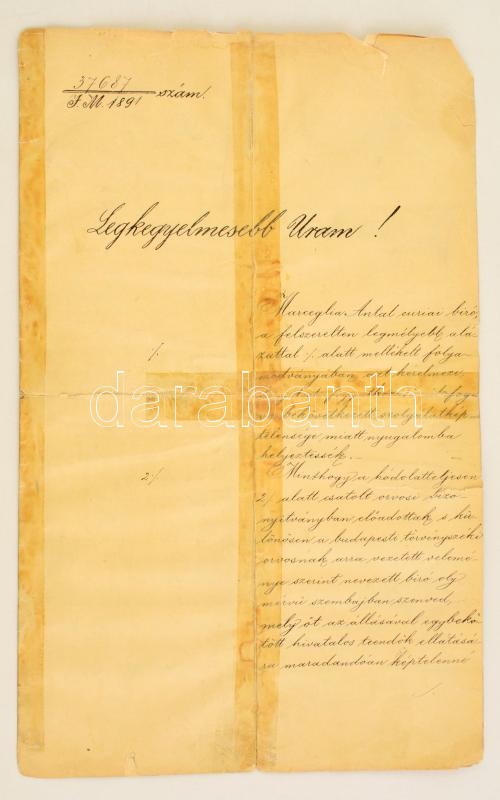 37687
I. M. 1891 szám.
Legkegyelmesebb Uram!
Marceglia Antal curiai biró,
a felszerelten legmélyebb alá-
zattal 1/. alatt mellékelt folya-
modványában azt kérelmezi,
1/.
bekövetkezett szolgálatkép-
telensége miatt nyugalomba
helyeztessék. —
Minthogy a hódolatteljesen
2/.
2/. alatt csatolt orvosi bizo-
nyitványban előadottak, s kü-
lönösen a budapesti törvényszéki
orvosnak, arra vezetett vélemé-
nye szerint nevezett biró oly
mérvü szembajban szenved,
mely őt az állásával egybekö-
tött hivatalos teendők ellátásá-
ra maradandóan képtelenné
darabanth